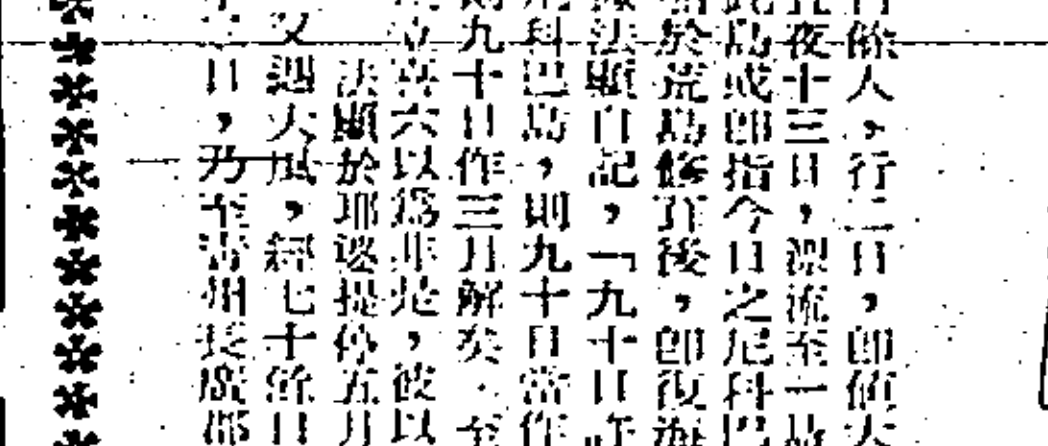 餘人，行二日，即值大
夜十三日，漂流至一島
此島或即指今日之尼科巴
於荒島修葺後，即復海
法顯自記，「九十日許
科巴島，則九十日當作
則九十日作三月解矣．至
立喜六以爲非是，彼以
法顯於耶婆提停五月
又遇大風，經七十餘日
日，乃至青州長廣郡